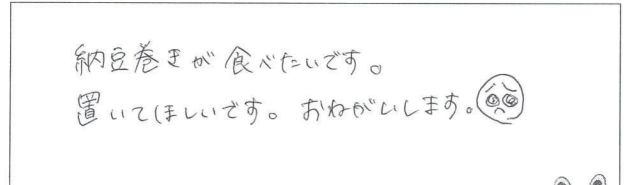 納豆巻きが食べたいです。
置いてほしいです。おねがいします。